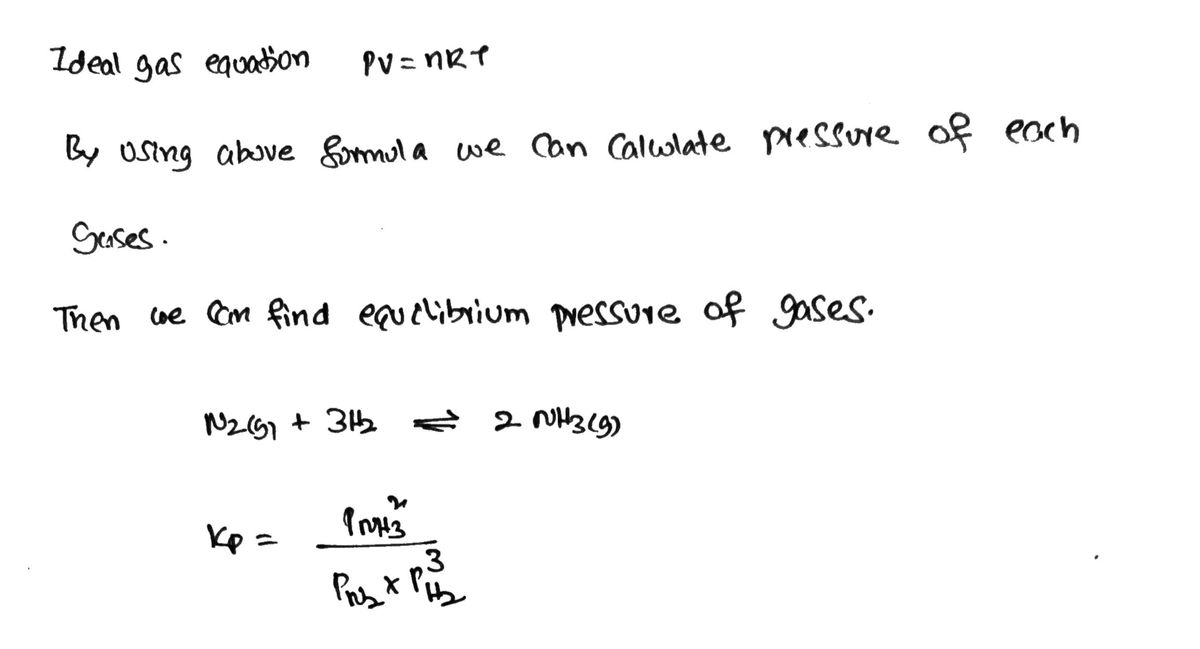 Ideal gas equation PV = nRT
By using above formula we can calculate pressure of each
gases.
Then we can find equilibrium pressure of gases.
N2(g) + 3H2 ⇌ 2 NH3(g)
Kp = P NH3^2 / P N2 × P H2^3